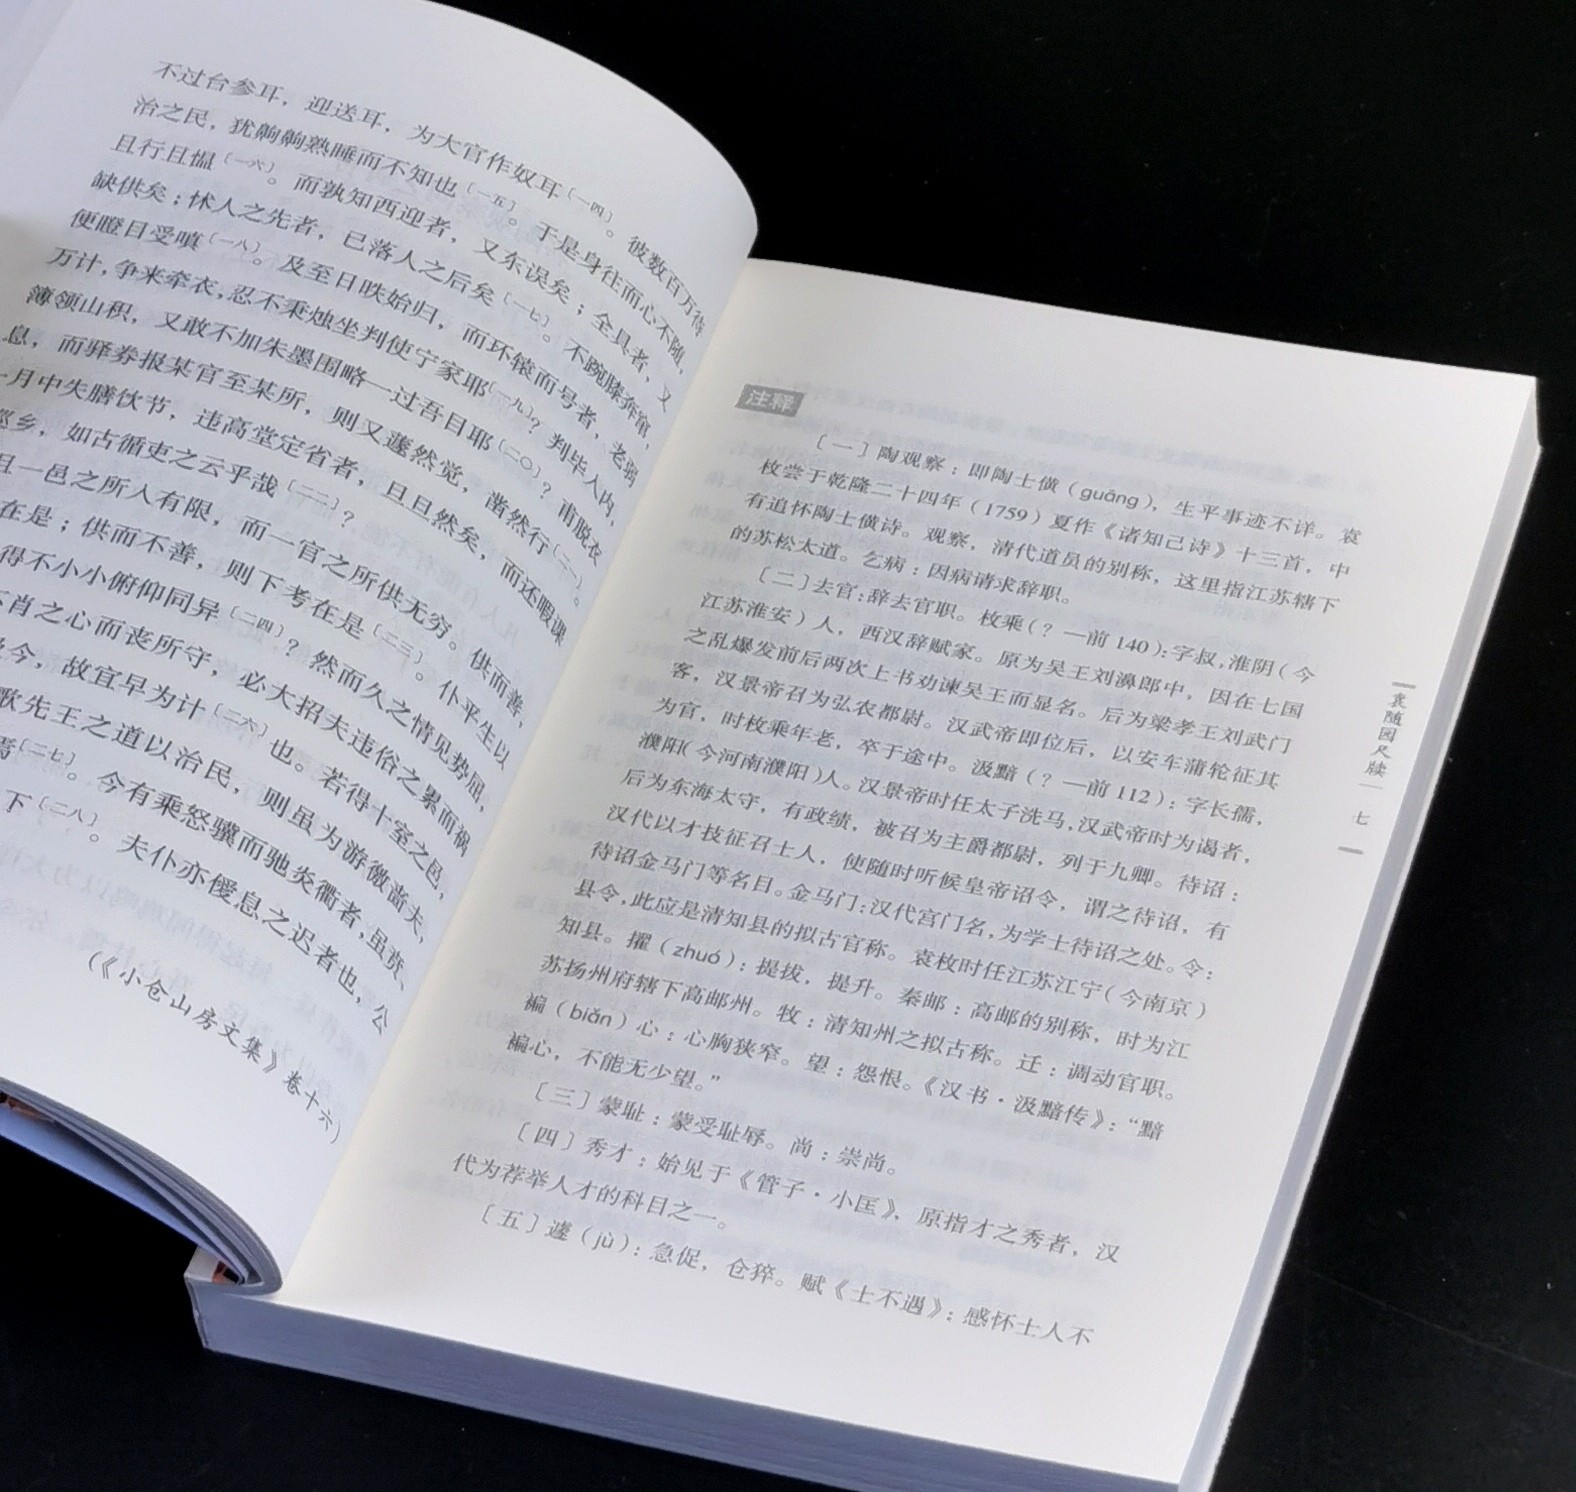 不过台参耳，迎送耳，为大官作奴耳〔一四〕。彼数百万待
治之民，犹齁齁熟睡而不知也〔一五〕。于是身往而心不随，
且行且愠〔一六〕。而孰知西迎者，又东误矣；全具者，又
缺供矣；怵人之先者，已落人之后矣〔一七〕。不踠膝奔窜，
便瞪目受嗔〔一八〕。及至日昳始归，而环辕而号者，老弱
万计，争来牵衣，忍不秉烛坐判使宁家耶〔一九〕？判毕入内，
簿领山积，又敢不加朱墨围略一过吾目耶〔二〇〕？甫脱衣
息，而驿券报某官至某所，则又蘧然觉，凿然行〔二一〕。
一月中失膳饮节，违高堂定省者，旦旦然矣，而还暇课
巡乡，如古循吏之云乎哉〔二二〕？
且一邑之所入有限，而一官之所供无穷。供而善，
在是；供而不善，则下考在是〔二三〕。仆平生以
得不小小俯仰同异〔二四〕？然而久之情见势屈，
不肖之心而丧所守，必大招夫违俗之累而祸
今，故宜早为计〔二六〕也。若得十室之邑，
歌先王之道以治民，则虽为游徼啬夫，
焉〔二七〕。今有乘怒骥而驰炎衢者，虽贲、
下〔二八〕。夫仆亦优息之迟者也，公
（《小仓山房文集》卷十六）
注释
〔一〕陶观察：即陶士僙（guāng），生平事迹不详。袁
枚尝于乾隆二十四年（1759）夏作《诸知己诗》十三首，中
有追怀陶士僙诗。观察，清代道员的别称，这里指江苏辖下
的苏松太道。乞病：因病请求辞职。
〔二〕去官：辞去官职。枚乘（？—前140）：字叔，淮阴（今
江苏淮安）人，西汉辞赋家。原为吴王刘濞郎中，因在七国
之乱爆发前后两次上书劝谏吴王而显名。后为梁孝王刘武门
客，汉景帝召为弘农都尉。汉武帝即位后，以安车蒲轮征其
为官，时枚乘年老，卒于途中。汲黯（？—前112）：字长儒，
濮阳（今河南濮阳）人。汉景帝时任太子洗马，汉武帝时为谒者，
后为东海太守，有政绩，被召为主爵都尉，列于九卿。待诏：
汉代以才技征召士人，使随时听候皇帝诏令，谓之待诏，有
待诏金马门等名目。金马门：汉代宫门名，为学士待诏之处。令：
县令，此应是清知县的拟古官称。袁枚时任江苏江宁（今南京）
知县。擢（zhuó）：提拔，提升。秦邮：高邮的别称，时为江
苏扬州府辖下高邮州。牧：清知州之拟古称。迁：调动官职。
褊（biǎn）心：心胸狭窄。望：怨恨。《汉书·汲黯传》：“黯
褊心，不能无少望。”
〔三〕蒙耻：蒙受耻辱。尚：崇尚。
〔四〕秀才：始见于《管子·小匡》，原指才之秀者，汉
代为荐举人才的科目之一。
〔五〕遽（jù）：急促，仓猝。赋《士不遇》：感怀士人不
袁随园尺牍
七